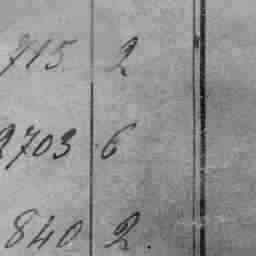 715 2
2703 6
840 2.